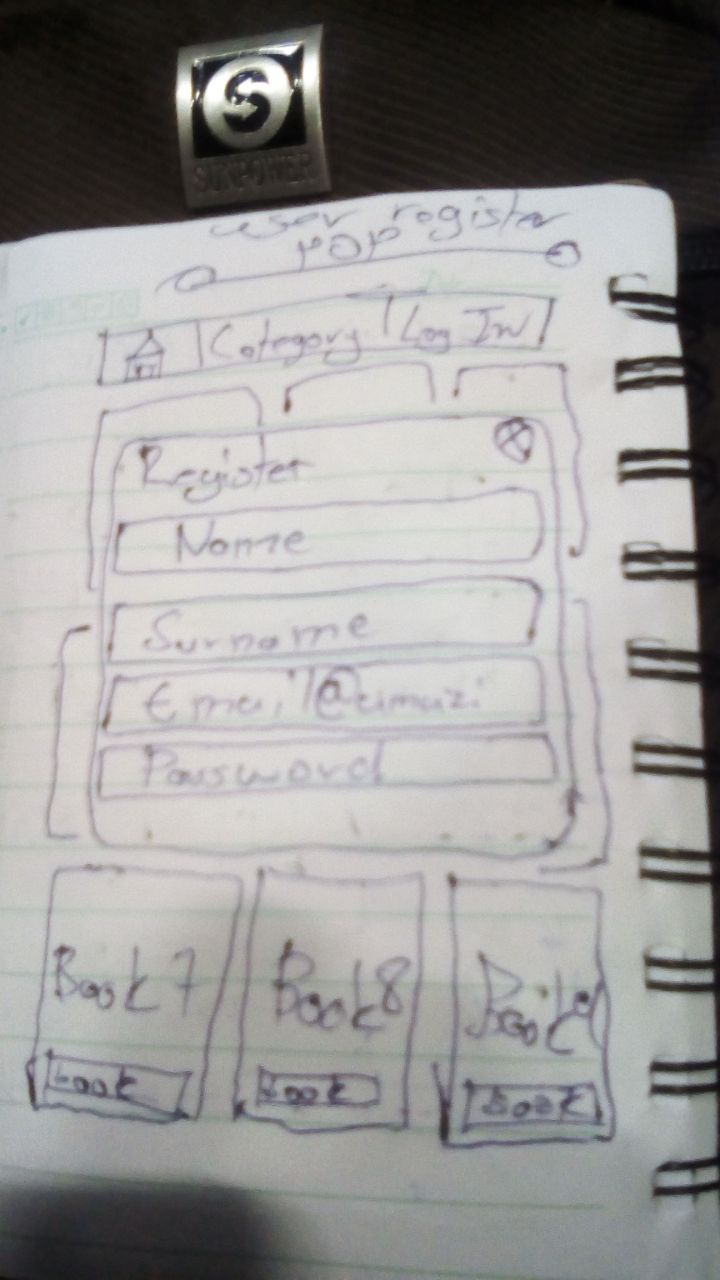 SUNPOWER
user register
pop
Category Log In
Register
Name
Surname
Email @umuzi
Password
Book 7 Book 8 Book 9
Book Book Book